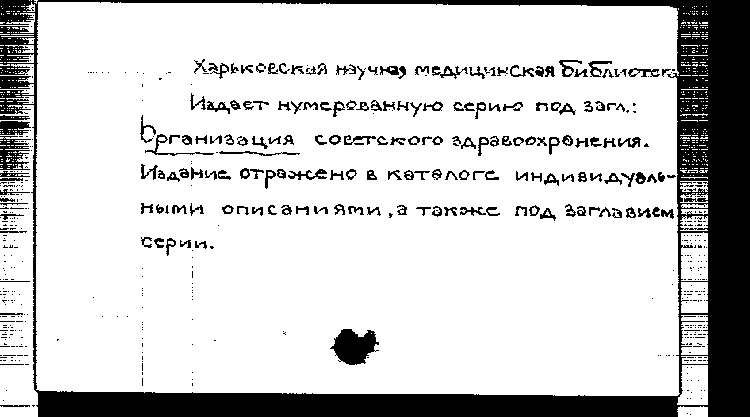 Харьковская научная медицинская библиотека
Издает нумерованную серию под загл.:
Организация советского здравоохронения.
Издание отражено в каталоге индивидуаль-
ными описаниями, а также под заглавием
серии.